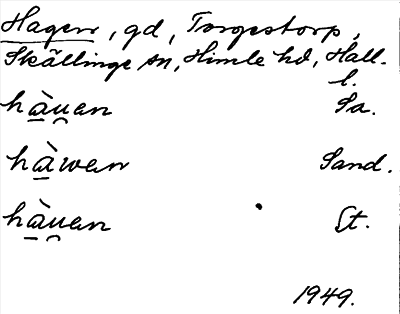 Hagen, gd, Torgestorp,
Skällinge sn, Himle hd, Hall.
l.
hàu̯an Sa.
hàwan Sand.
hàu̯an St.
1949.